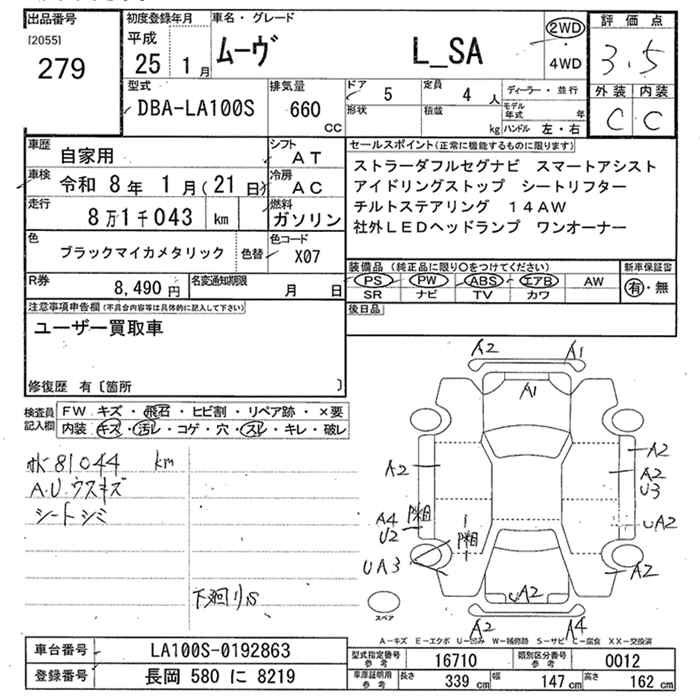 出品番号
[2055]
279
初度登録年月
平成
25 1月
車名・グレード
ムーヴ L_SA
2WD
・
4WD
評価点
3.5
外装 内装
C C
型式
DBA-LA100S
排気量
660
CC
ドア 5
形状
定員 4 人
積載 kg
ディーラー・並行
モデル年式 年
ハンドル 左・右
車歴 自家用
シフト AT
車検 令和 8年 1月(21日)
冷房 AC
走行 8万1千043 km
燃料 ガソリン
色 ブラックマイカメタリック
色替
色コード X07
R券 8,490円
名変通知期限 月 日
セールスポイント(正常に機能するものに限ります)
ストラーダフルセグナビ スマートアシスト
アイドリングストップ シートリフター
チルトステアリング 14AW
社外LEDヘッドランプ ワンオーナー
装備品 (純正品に限り○をつけてください)
PS PW ABS エアB AW
SR ナビ TV カワ
新車保証書
有・無
後日品
注意事項申告欄(不具合内容等は具体的に記入して下さい)
ユーザー買取車
修復歴 有〔箇所 〕
検査員記入欄
FW キズ・飛石・ヒビ割・リペア跡・×要
内装 キズ・汚レ・コゲ・穴・スレ・キレ・破レ
81044 km
A.U.ウスキズ
シートシミ
下廻りS
A2 A1
A1
A2
A2
A2
U3
A4
U2
凹粗
凹粗
UA2
UA3
UA2
A2
A2 A4
スペア
A－キズ E－エクボ U－凹み W－補修跡 S－サビ C－腐食 XX－交換済
車台番号 LA100S-0192863
登録番号 長岡 580 に 8219
型式指定番号 参考 16710
類別区分番号 参考 0012
車庫証明用 参考 長さ 339 cm 幅 147 cm 高さ 162 cm